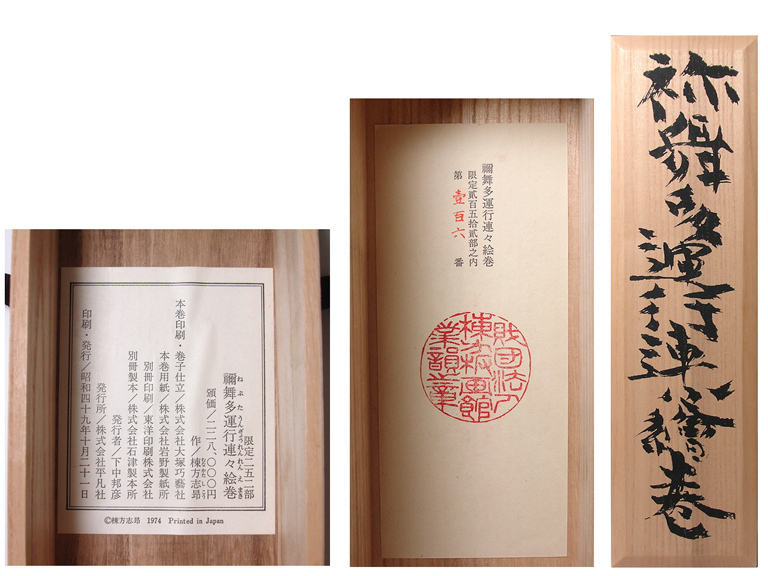 祢舞多運行連々繪巻
禰舞多運行連々絵巻
限定貳百五拾貳部之内
第 壹百六 番
財団法人
棟方板画館
限定二五二部
禰舞多運行連々絵巻
頒価/二二八、〇〇〇円
作/棟方志昂
本巻印刷・巻子仕立/株式会社大塚巧藝社
本巻用紙/株式会社岩野製紙所
別冊印刷/東洋印刷株式会社
別冊製本/株式会社石津製本所
発行者/下中邦彦
発行所/株式会社平凡社
印刷・発行/昭和四十九年十月二十一日
©棟方志昂 1974 Printed in Japan